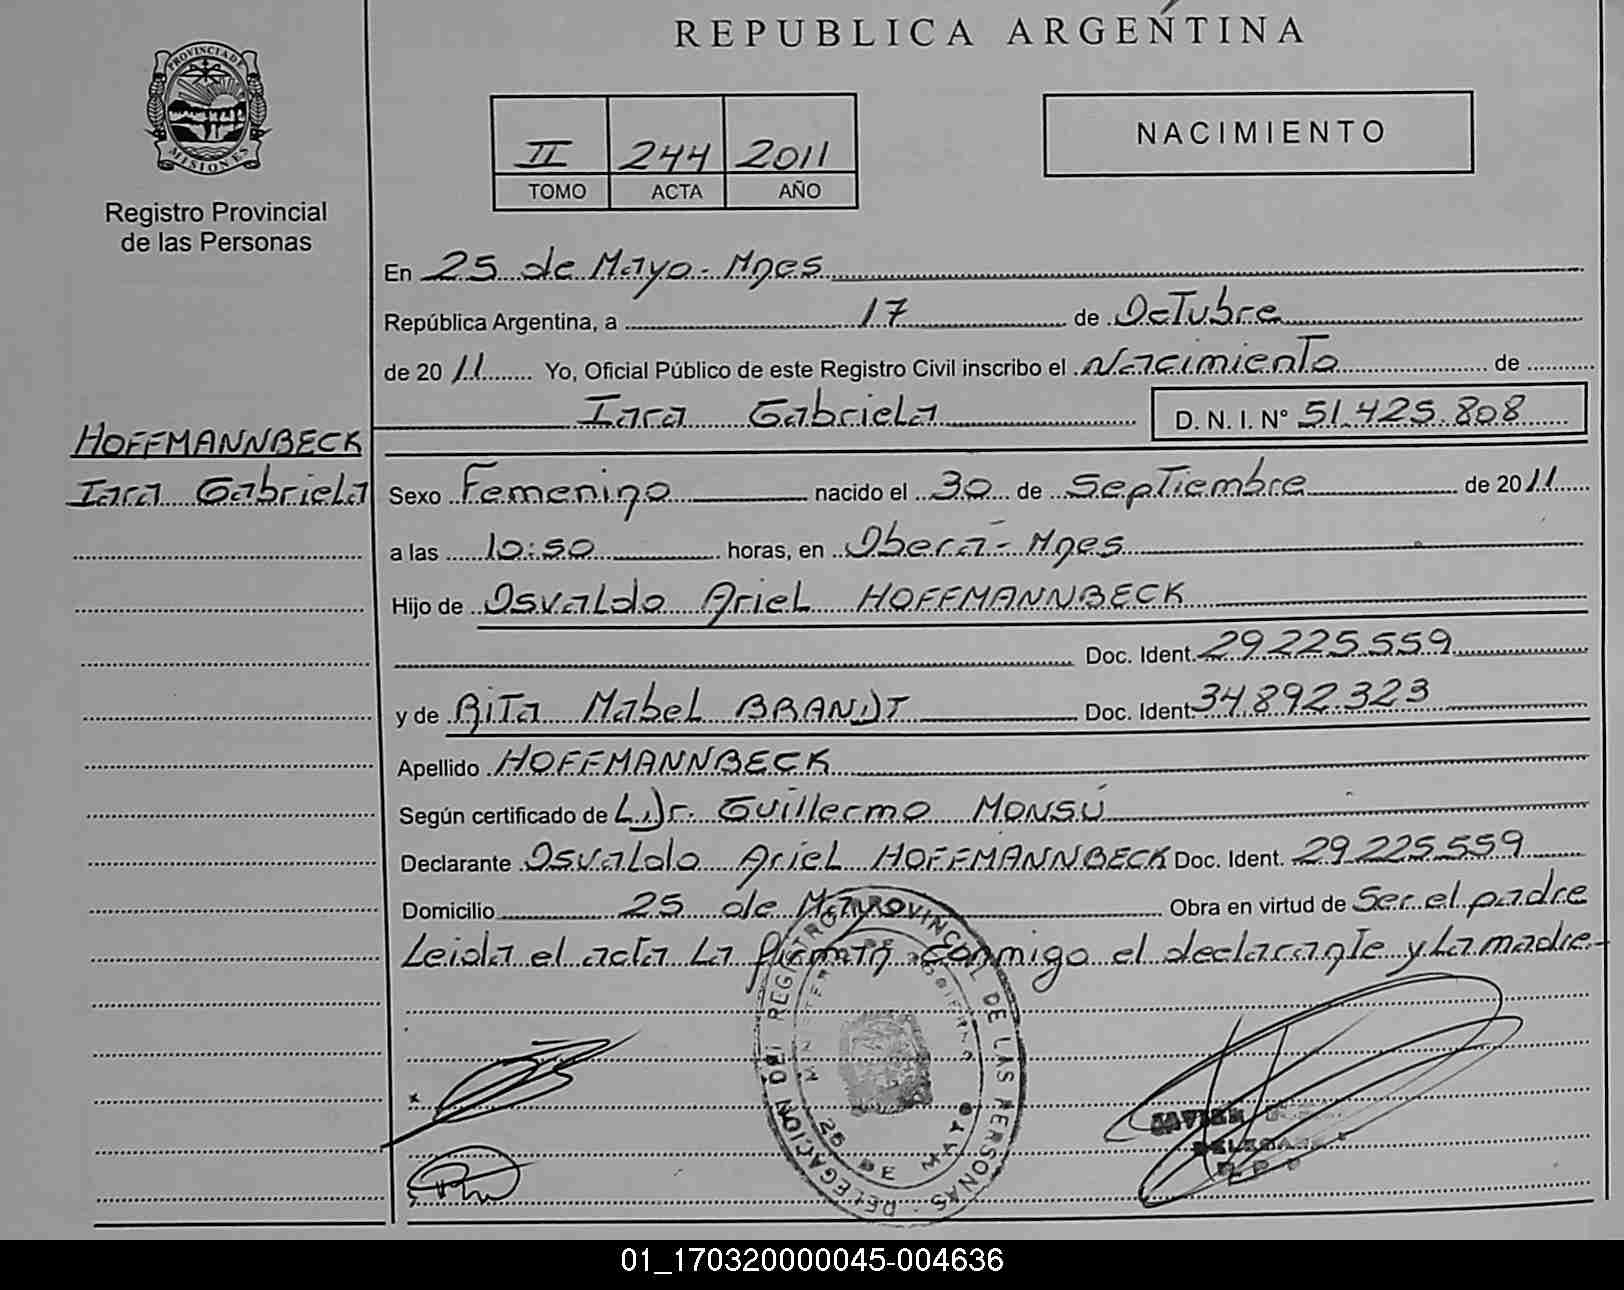 REPUBLICA ARGENTINA
PROVINCIA DE
MISIONES
Registro Provincial
de las Personas
II 244 2011
TOMO ACTA AÑO
NACIMIENTO
En 25 de Mayo - Mnes
República Argentina, a 17 de Octubre
de 2011 Yo, Oficial Público de este Registro Civil inscribo el Nacimiento de
Iara Gabriela D. N. I. Nº 51.425.808
HOFFMANNBECK
Iara Gabriela
Sexo Femenino nacido el 30 de Septiembre de 2011
a las 10:50 horas, en Oberá - Mnes
Hijo de Osvaldo Ariel HOFFMANNBECK
Doc. Ident. 29.225.559
y de Rita Mabel BRANDT Doc. Ident. 34.892.323
Apellido HOFFMANNBECK
Según certificado de L Dr. Guillermo MONSÚ
Declarante Osvaldo Ariel HOFFMANNBECK Doc. Ident. 29.225.559
Domicilio 25 de Mayo Obra en virtud de Ser el padre
Leida el acta La firman conmigo el declarante y La madre
DELEGACION DEL REGISTRO PROVINCIAL DE LAS PERSONAS
25 DE MAYO
JAVIER
01_170320000045-004636